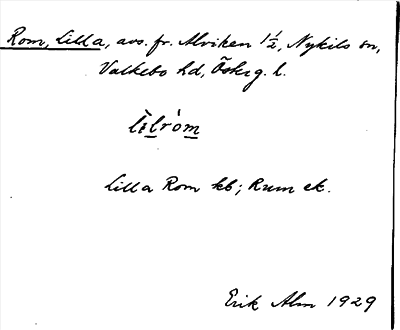 Rom, Lilla, avs. fr. Alviken 1½, Nykils sn,
Valkebo hd, Österg. l.
Lilla Rom kb; Rum ek.
Erik Alm 1929